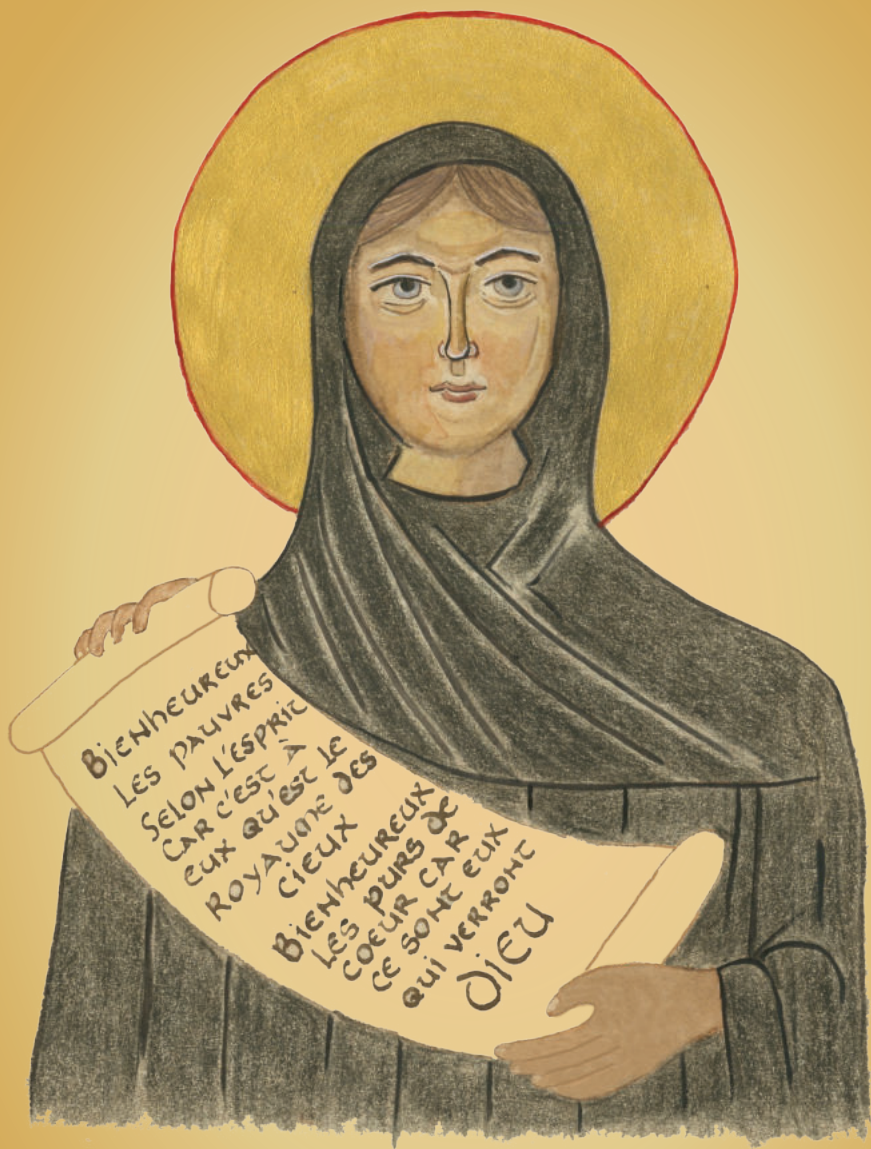 Bienheureux
les pauvres
selon l'esprit
car c'est à
eux qu'est le
royaume des
cieux
Bienheureux
les purs de
coeur car
ce sont eux
qui verront
Dieu